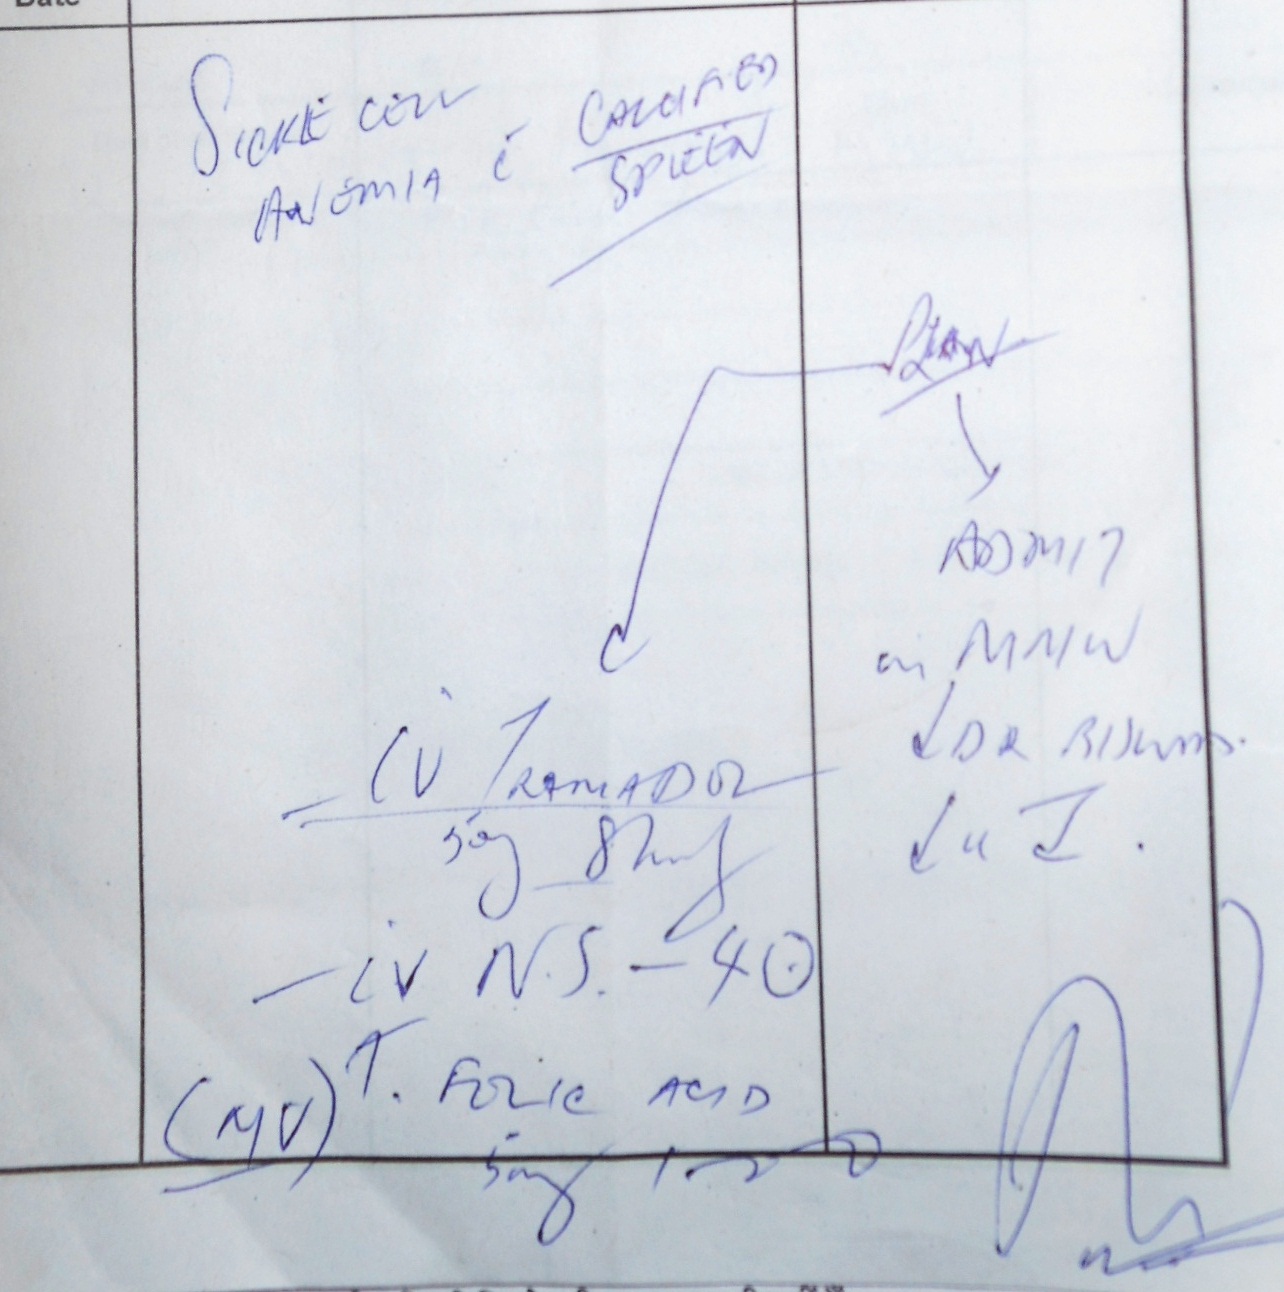 Date
SICKLE CELL CALCIFIED
ANEMIA c̄ SPLEEN
PLAN
ADMIT
in MMW
↓ DR
↓ U I.
- IV TRAMADOL
50mg 8hrly
- IV N.S. - 4
(MV) T. FOLIC ACID
5mg 1-0-0